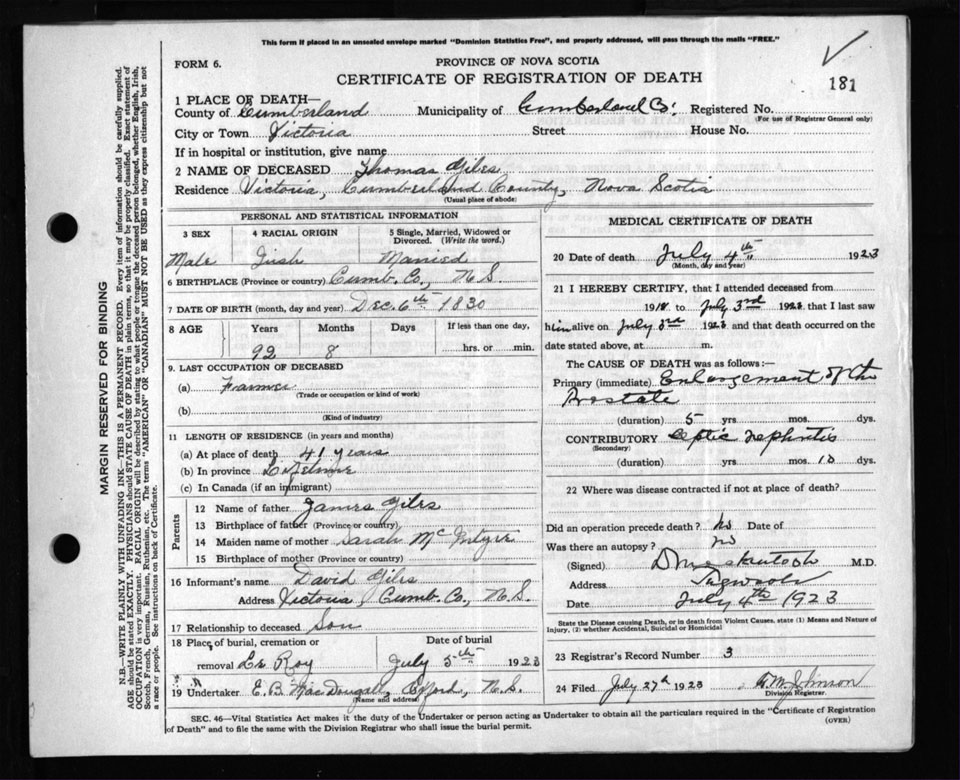 This form if placed in an unsealed envelope marked "Dominion Statistics Free", and properly addressed, will pass through the mails "FREE."
FORM 6.
PROVINCE OF NOVA SCOTIA
CERTIFICATE OF REGISTRATION OF DEATH
181
1 PLACE OF DEATH—
County of Cumberland Municipality of Cumberland Co. Registered No.
(For use of Registrar General only)
City or Town Victoria Street House No.
If in hospital or institution, give name
2 NAME OF DECEASED Thomas Giles
Residence Victoria, Cumberland County, Nova Scotia
(Usual place of abode)
PERSONAL AND STATISTICAL INFORMATION
3 SEX 4 RACIAL ORIGIN 5 Single, Married, Widowed or Divorced. (Write the word.)
Male Irish Married
6 BIRTHPLACE (Province or country) Cumb. Co., N.S.
7 DATE OF BIRTH (month, day and year) Dec. 6th 1830
8 AGE Years Months Days If less than one day
92 8 hrs. or min.
9. LAST OCCUPATION OF DECEASED
(a) Farmer
(Trade or occupation or kind of work)
(b)
(Kind of industry)
11 LENGTH OF RESIDENCE (in years and months)
(a) At place of death 41 years
(b) In province Lifetime
(c) In Canada (if an immigrant)
Parents
12 Name of father James Giles
13 Birthplace of father (Province or country)
14 Maiden name of mother Sarah McIntyre
15 Birthplace of mother (Province or country)
16 Informant's name David Giles
Address Victoria, Cumb. Co., N.S.
17 Relationship to deceased Son
18 Place of burial, cremation or removal Le Roy
Date of burial July 5th 1923
19 Undertaker E. B. MacDougall, Oxford, N.S.
(Name and address)
MEDICAL CERTIFICATE OF DEATH
20 Date of death July 4th 1923
(Month, day and year)
21 I HEREBY CERTIFY, that I attended deceased from
1918 to July 3rd 1923 that I last saw
him alive on July 3rd 1923 and that death occurred on the
date stated above, at m.
The CAUSE OF DEATH was as follows:—
Primary (immediate) Enlargement of the
Prostate
(duration) 5 yrs mos. dys.
CONTRIBUTORY Septic nephritis
(Secondary)
(duration) yrs. mos. 10 dys.
22 Where was disease contracted if not at place of death?
Did an operation precede death? no Date of
Was there an autopsy? no
(Signed) M.D.
Address Pugwash
Date July 4th 1923
State the Disease causing Death, or in death from Violent Causes, state (1) Means and Nature of Injury, (2) whether Accidental, Suicidal or Homicidal
23 Registrar's Record Number 3
24 Filed July 27th 1923 Johnson
Division Registrar.
SEC. 46—Vital Statistics Act makes it the duty of the Undertaker or person acting as Undertaker to obtain all the particulars required in the "Certificate of Registration
of Death" and to file the same with the Division Registrar who shall issue the burial permit.
(OVER)
MARGIN RESERVED FOR BINDING
N.B.—WRITE PLAINLY WITH UNFADING INK—THIS IS A PERMANENT RECORD. Every item of information should be carefully supplied.
AGE should be stated EXACTLY. PHYSICIANS should STATE CAUSE OF DEATH in plain terms, so that it may be properly classified. Exact statement of
OCCUPATION is very important. RACIAL ORIGIN will be described by stating to what people or tongue the deceased person belonged, whether English, Irish,
Scotch, French, German, Russian, Ruthenian, etc. The terms "AMERICAN" OR "CANADIAN" MUST NOT BE USED as they express citizenship but not
a race or people. See instructions on back of Certificate.